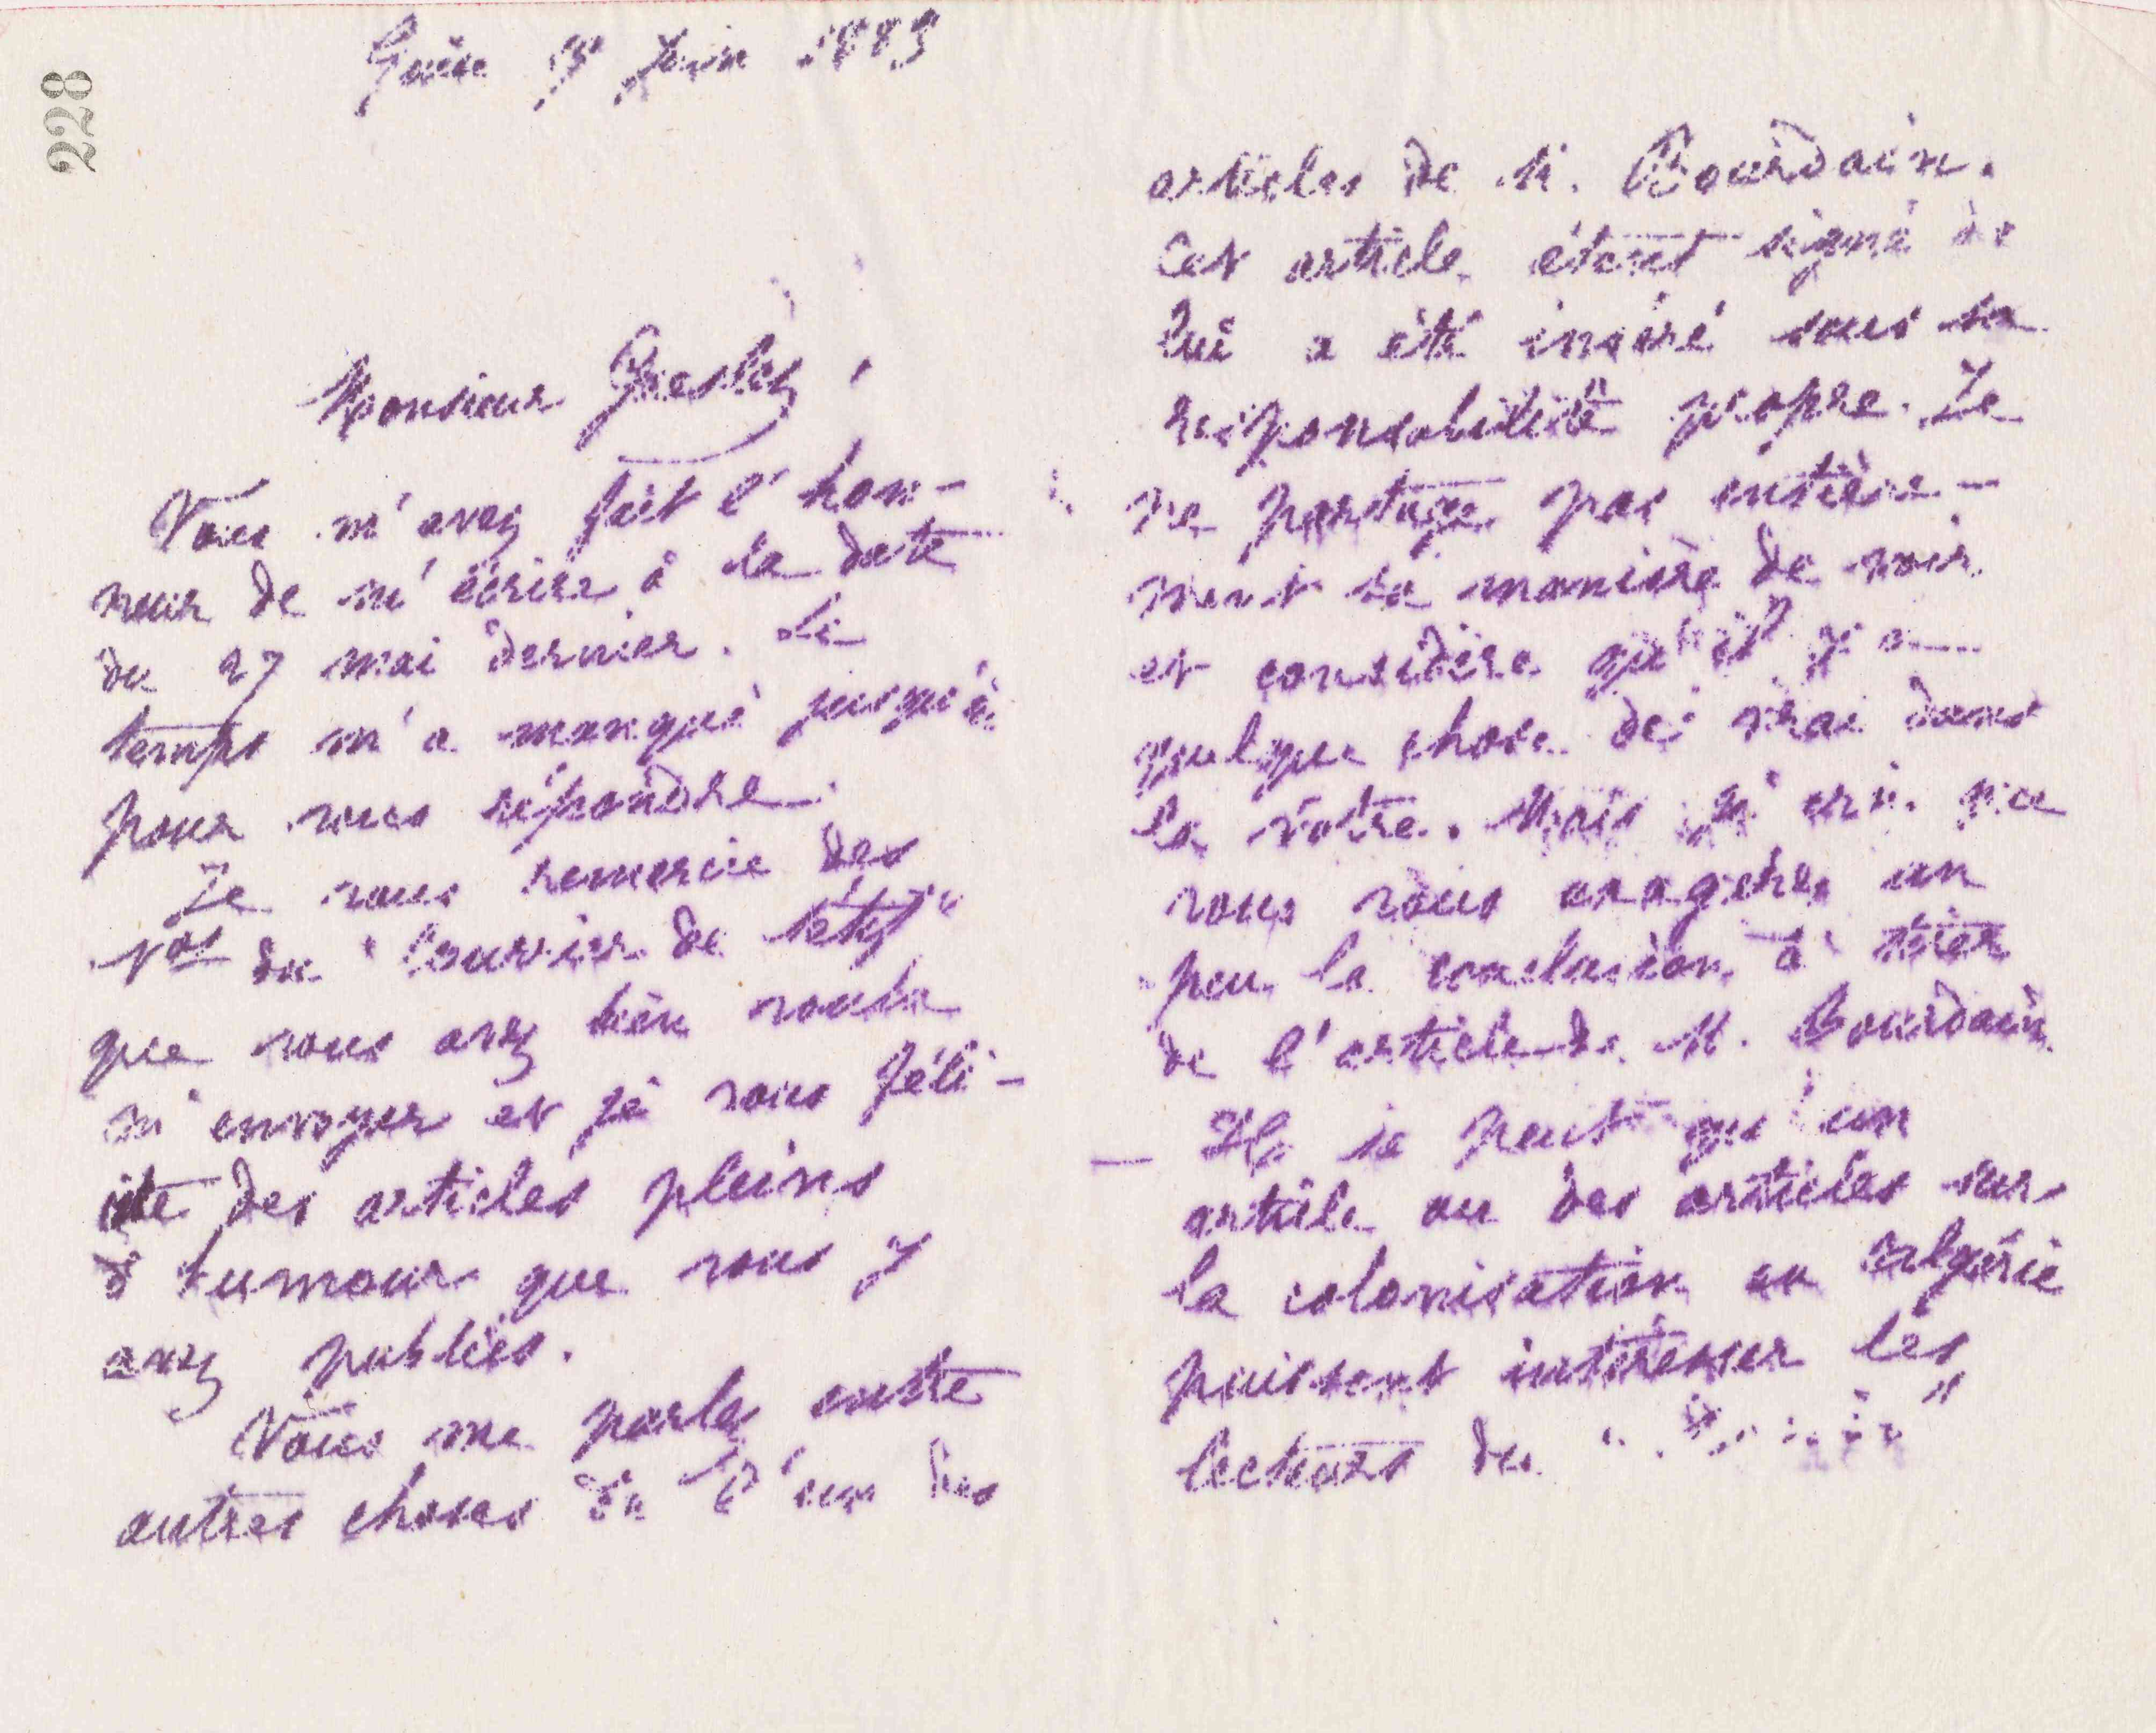 228
Guise 9 Juin 1889
Monsieur Greslez,
Vous m'avez fait l'hon-
neur de m'écrire à la date
du 27 mai dernier. Le
temps m'a manqué jusqu'à
pour vous répondre.
Je vous remercie des
Nos du "Courrier de Sétif"
que vous avez bien voulu
m'envoyer et je vous féli-
cite des articles pleins
d'humour que vous y
avez publiés.
Vous me parlez entre
autres choses de l'un des
articles de M. Bourdain.
Cet article étant signé de
lui a été inséré sous sa
responsabilité propre. Je
ne partage pas entière-
ment sa manière de voir
et considère qu'il y a
quelque chose de vrai dans
la vôtre. Mais
vous vous exagérez un
peu la conclusion à tirer
de l'article de M. Bourdain.
Il se peut qu'un
article ou des articles sur
la colonisation en Algérie
puissent intéresser les
lecteurs du " "